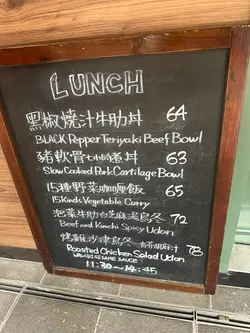 LUNCH
黑椒燒汁牛肋丼 64
BLACK Pepper Teriyaki Beef Bowl
豬軟骨七小時煮丼 63
Slow Cooked Pork Cartilage Bowl
15種野菜咖喱飯 65
15 Kinds Vegetable Curry
泡菜牛肋白芝麻湯烏冬 72
Beef and Kimchi Spicy Udon
燒雞沙津烏冬 胡麻汁 78
Roasted Chicken Salad Udon
WASABI SESAME SAUCE
11:30 ~ 14:45